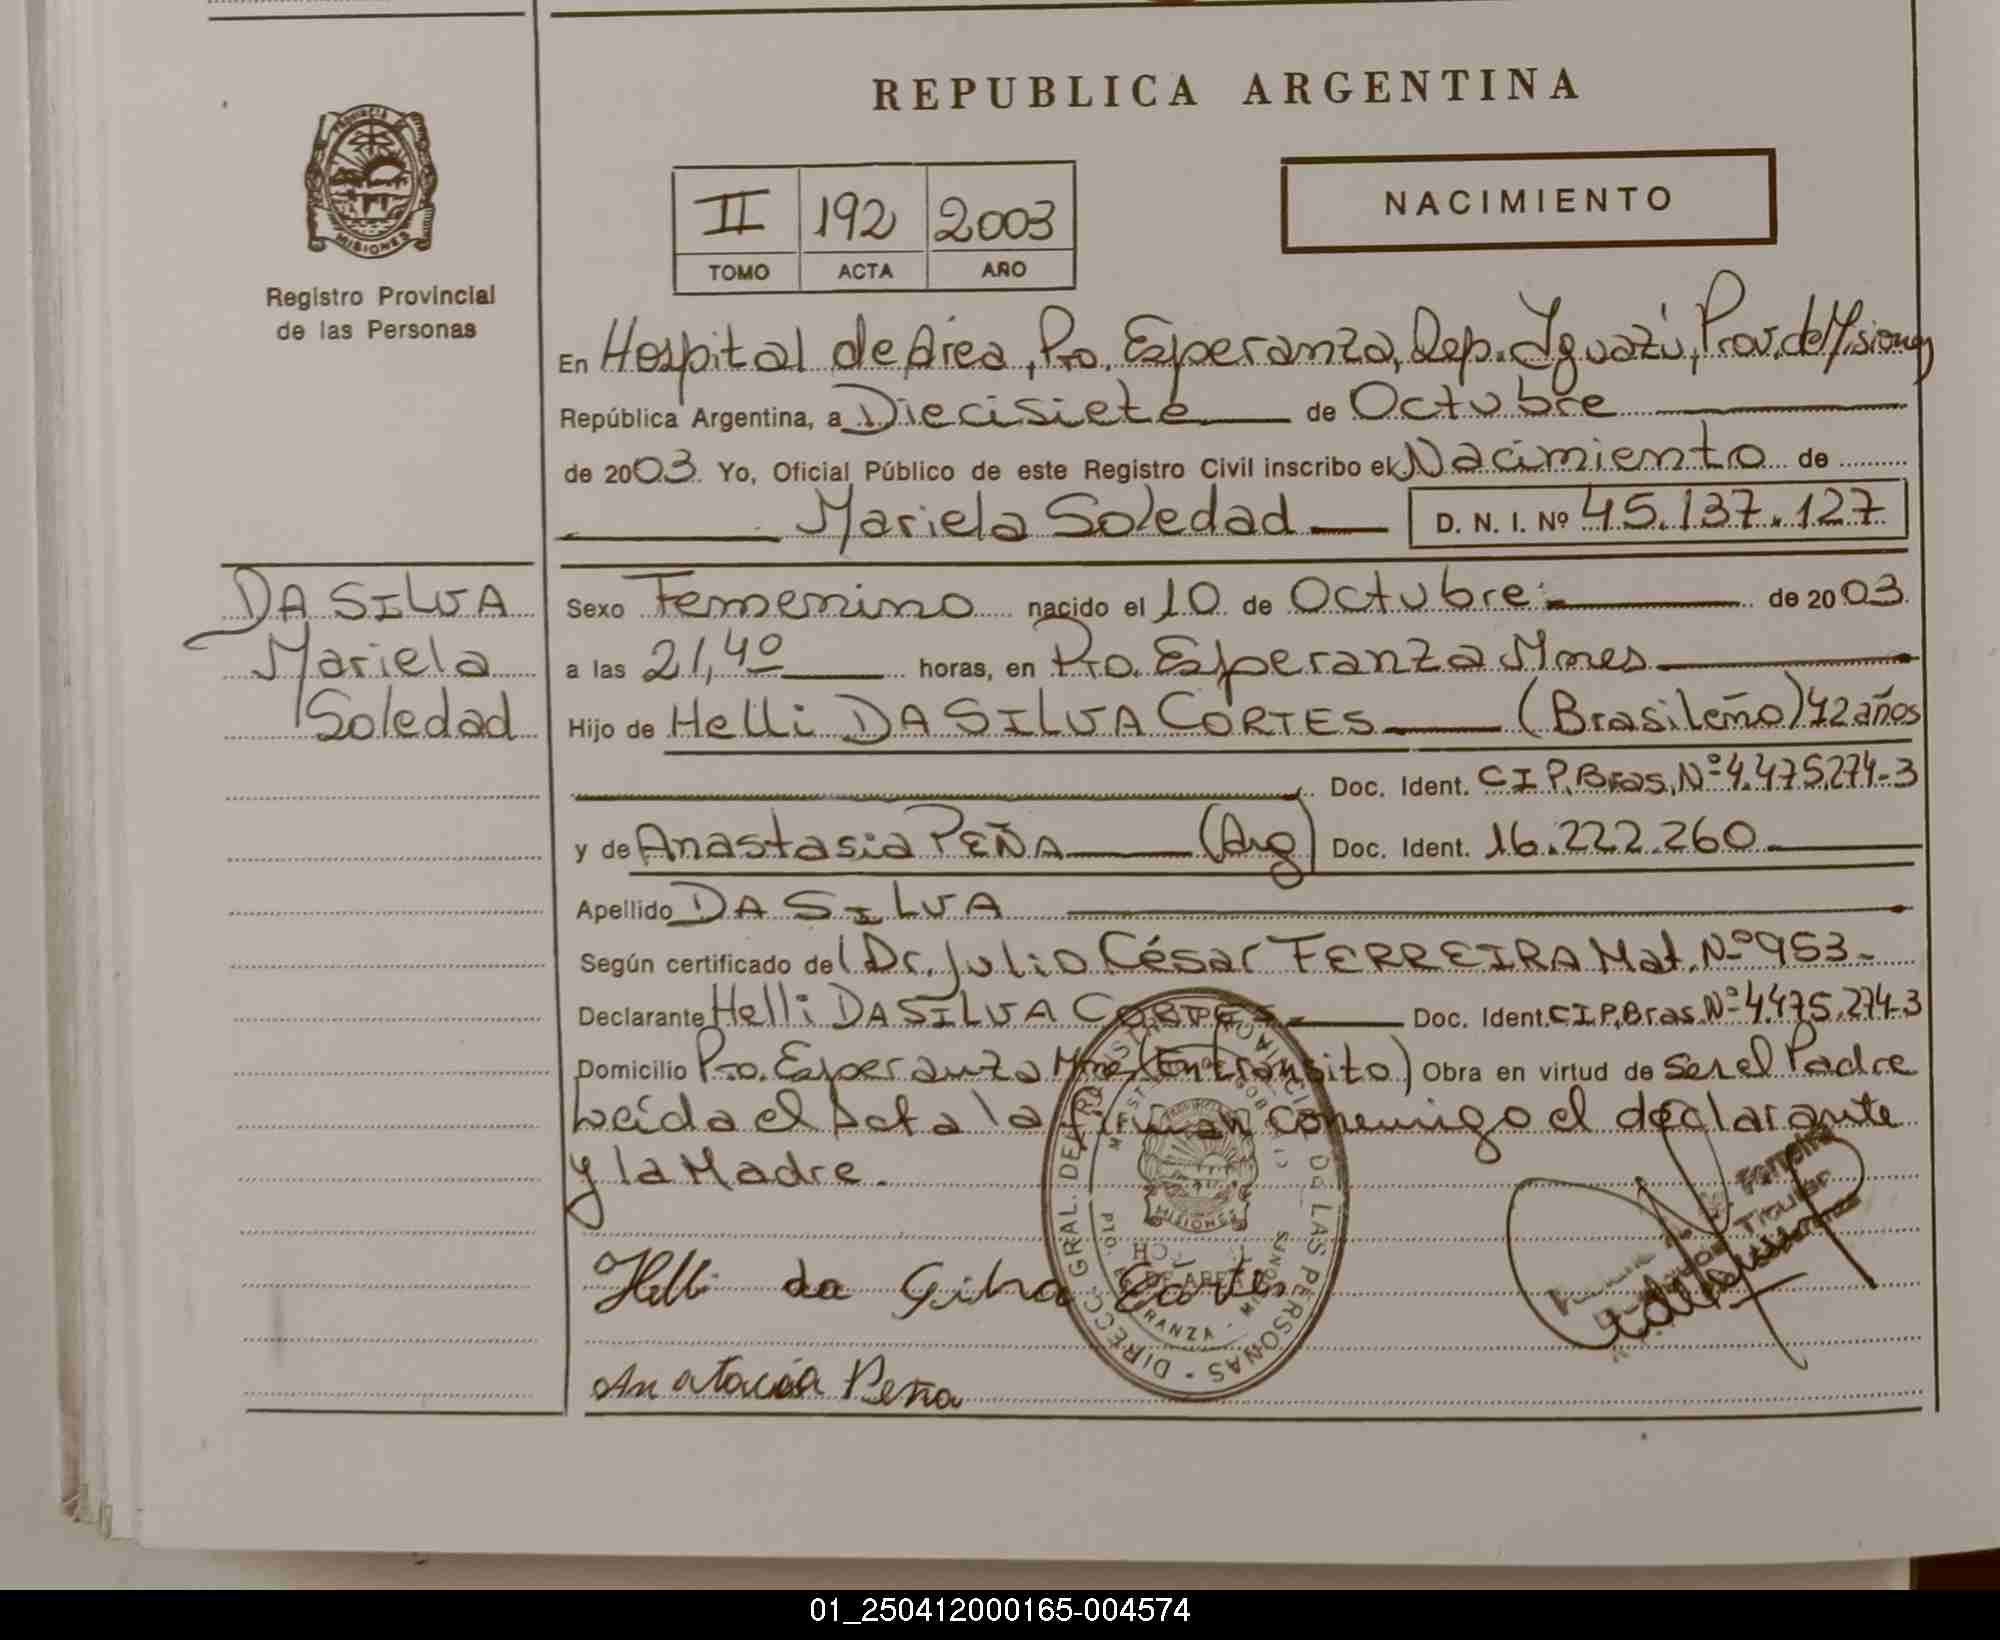 REPUBLICA ARGENTINA
PROVINCIA DE
MISIONES
Registro Provincial
de las Personas
II 192 2003
TOMO ACTA AÑO
NACIMIENTO
En Hospital de Área, Pto. Esperanza, Dep. Iguazú, Prov. de Misiones
República Argentina, a Diecisiete de Octubre
de 2003. Yo, Oficial Público de este Registro Civil inscribo el Nacimiento de
Mariela Soledad D. N. I. Nº 45.137.127
DA SILVA
Mariela
Soledad
Sexo Femenino nacido el 10 de Octubre de 2003
a las 21,40 horas, en Pto. Esperanza Mnes
Hijo de Helli DA SILVA CORTES (Brasileño) 42 años
Doc. Ident. C I P. Bras. Nº 4.475.274-3
y de Anastasia PEÑA (Arg) Doc. Ident. 16.222.260
Apellido DA SILVA
Según certificado del Dr. Julio César FERREIRA Mat. Nº 953-
Declarante Helli DA SILVA CORTES Doc. Ident. C I P. Bras. Nº 4.475.274-3
Domicilio Pto. Esperanza Mnes (En transito) Obra en virtud de ser el Padre
Leída el Acta la firman conmigo el declarante
y la Madre.
DIRECC. GRAL. DE LAS PERSONAS
MISIONES
Helli da Silva Cortes
Titular
Anatacia Peña
01_250412000165-004574